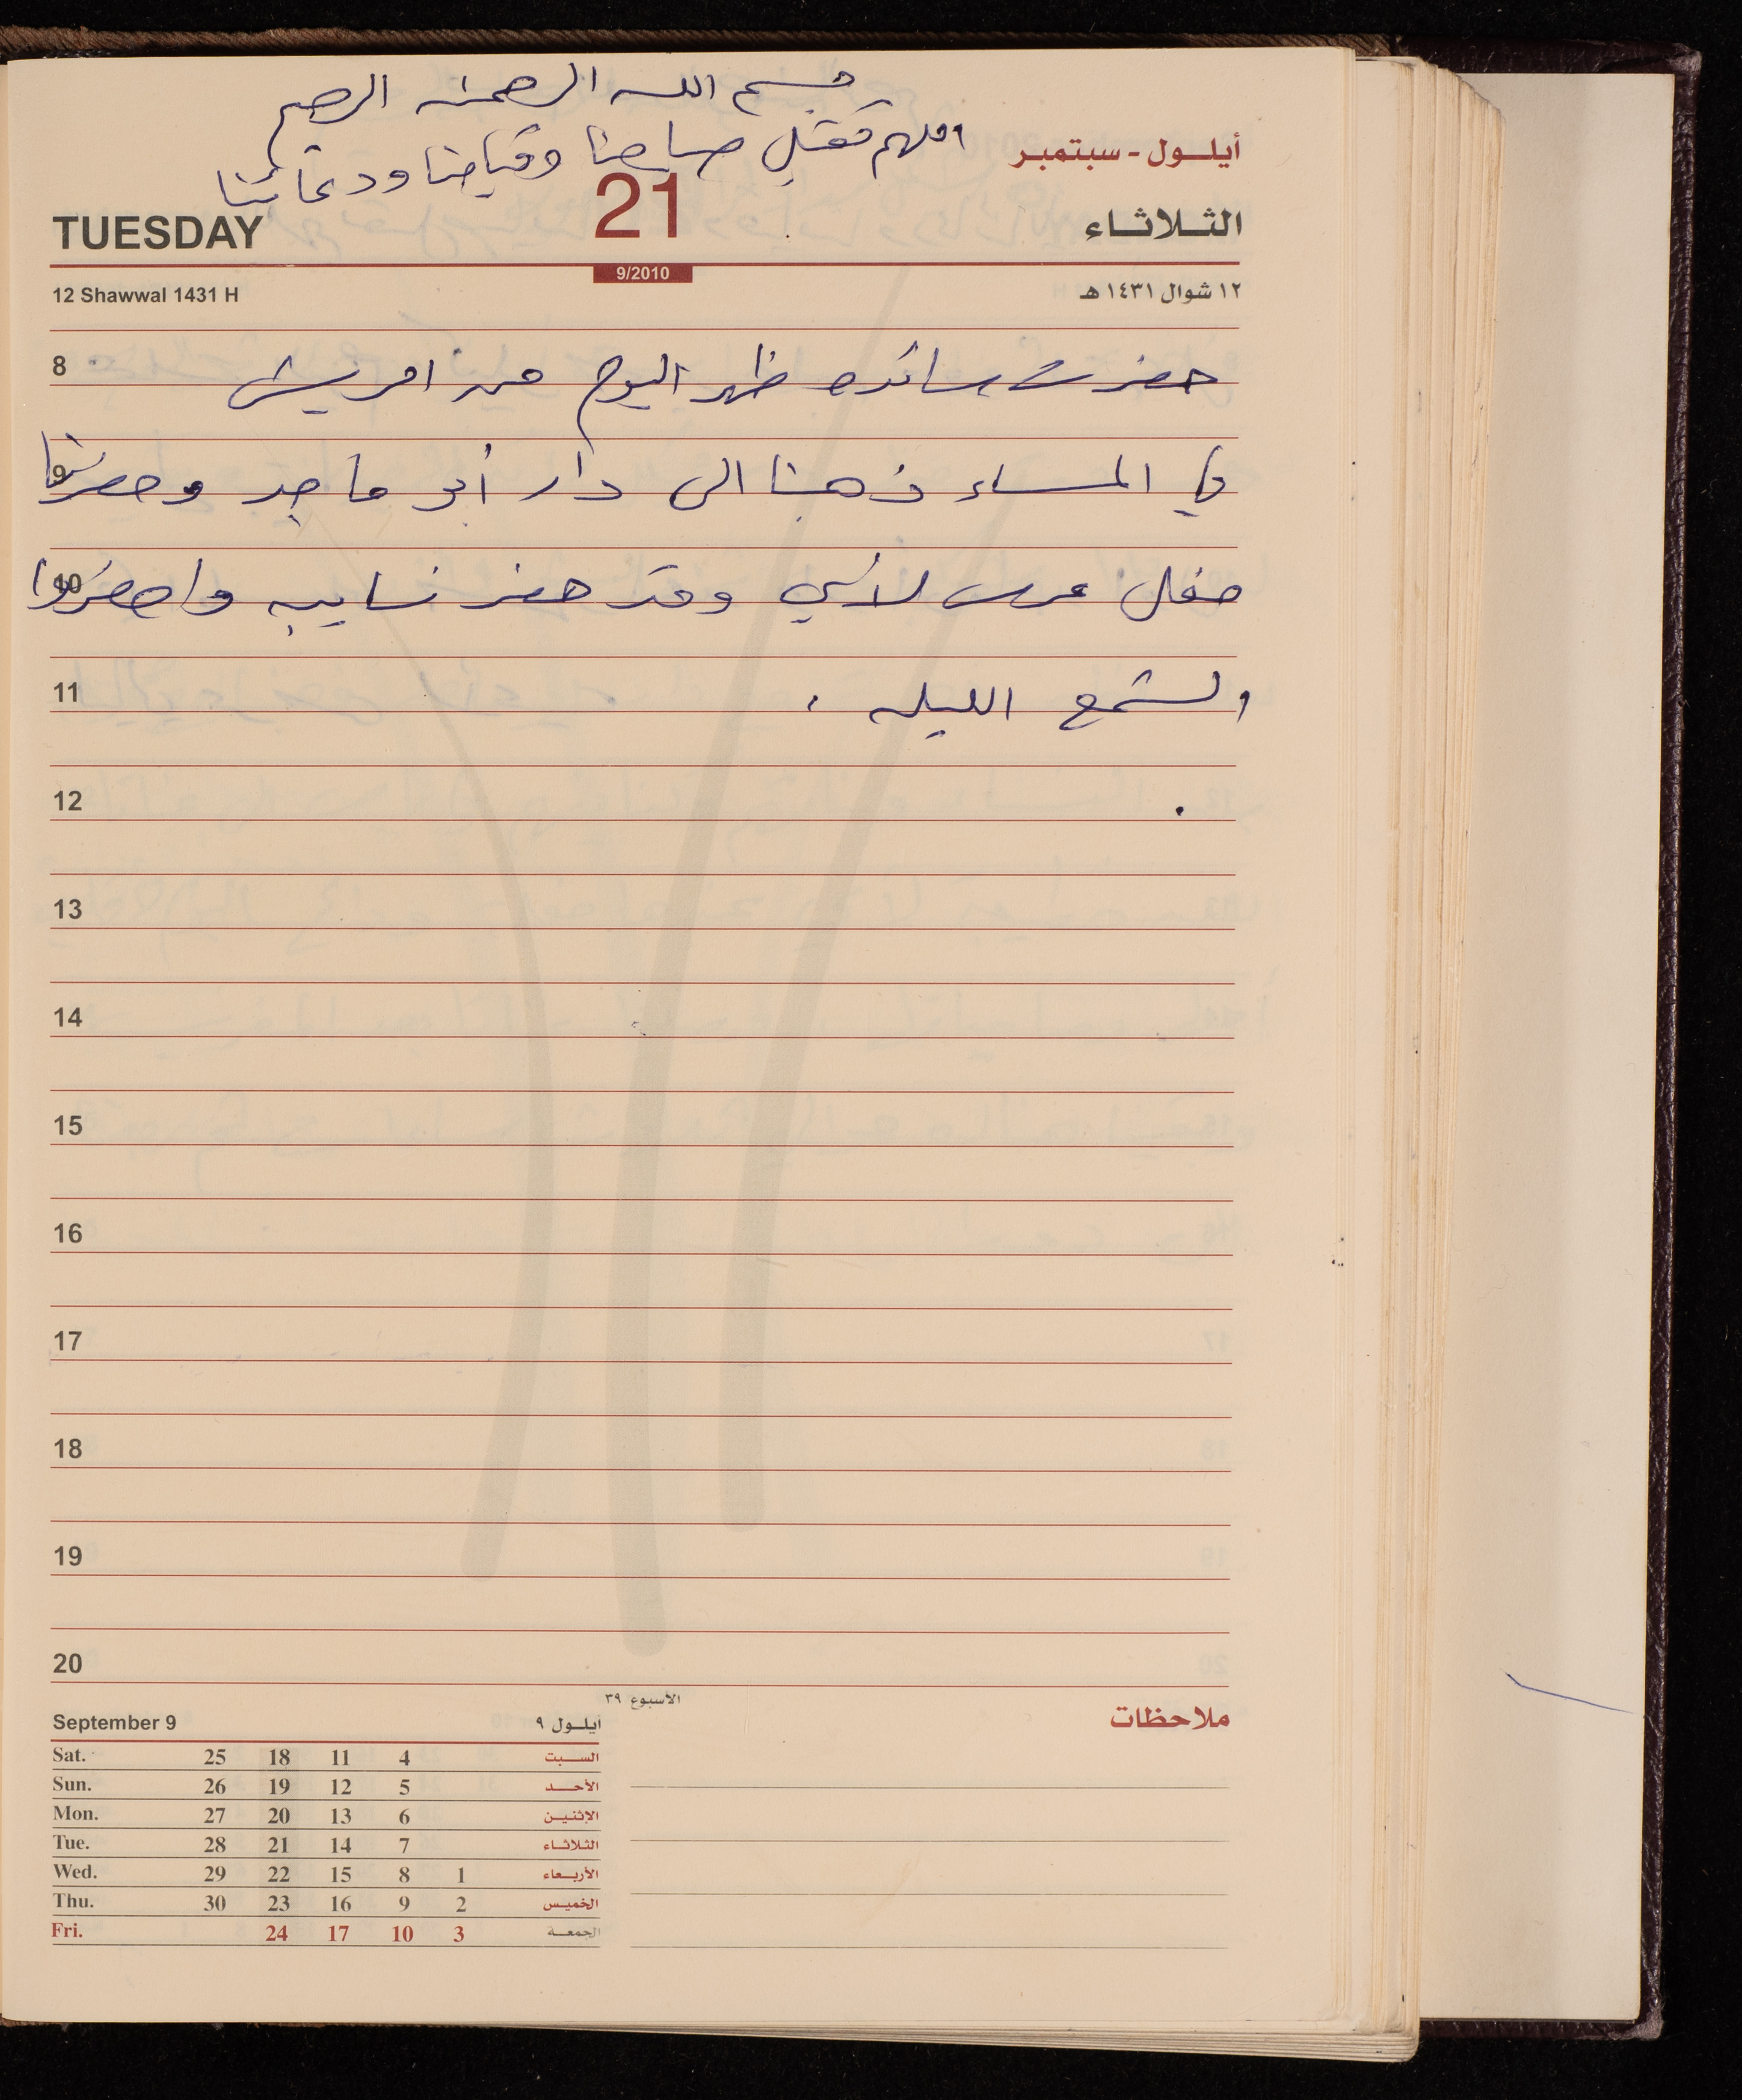 بسم الله الرحمن الرحيم
اللهم تقبل صيامنا وقيامنا ودعائنا
أيلـول - سبتمبر
21
TUESDAY
الثـلاثـاء
9/2010
12 Shawwal 1431 H
١٢ شوال ١٤٣١ هـ
8 حضرت سائده ظهر اليوم من امريش
9 في المساء ذهبنا الى دار أبو ماجد وحضرنا
10 حفل عرس لاني وقد حضر نسايبه واحضروا
11 الشمع الليله .
12
13
14
15
16
17
18
19
20
الأسبوع ٣٩
ملاحظات
September 9 أيلـول ٩
Sat. 25 18 11 4 السـبت
Sun. 26 19 12 5 الأحـد
Mon. 27 20 13 6 الإثنـين
Tue. 28 21 14 7 الثلاثـاء
Wed. 29 22 15 8 1 الأربـعاء
Thu. 30 23 16 9 2 الخميـس
Fri. 24 17 10 3 الجمعـة